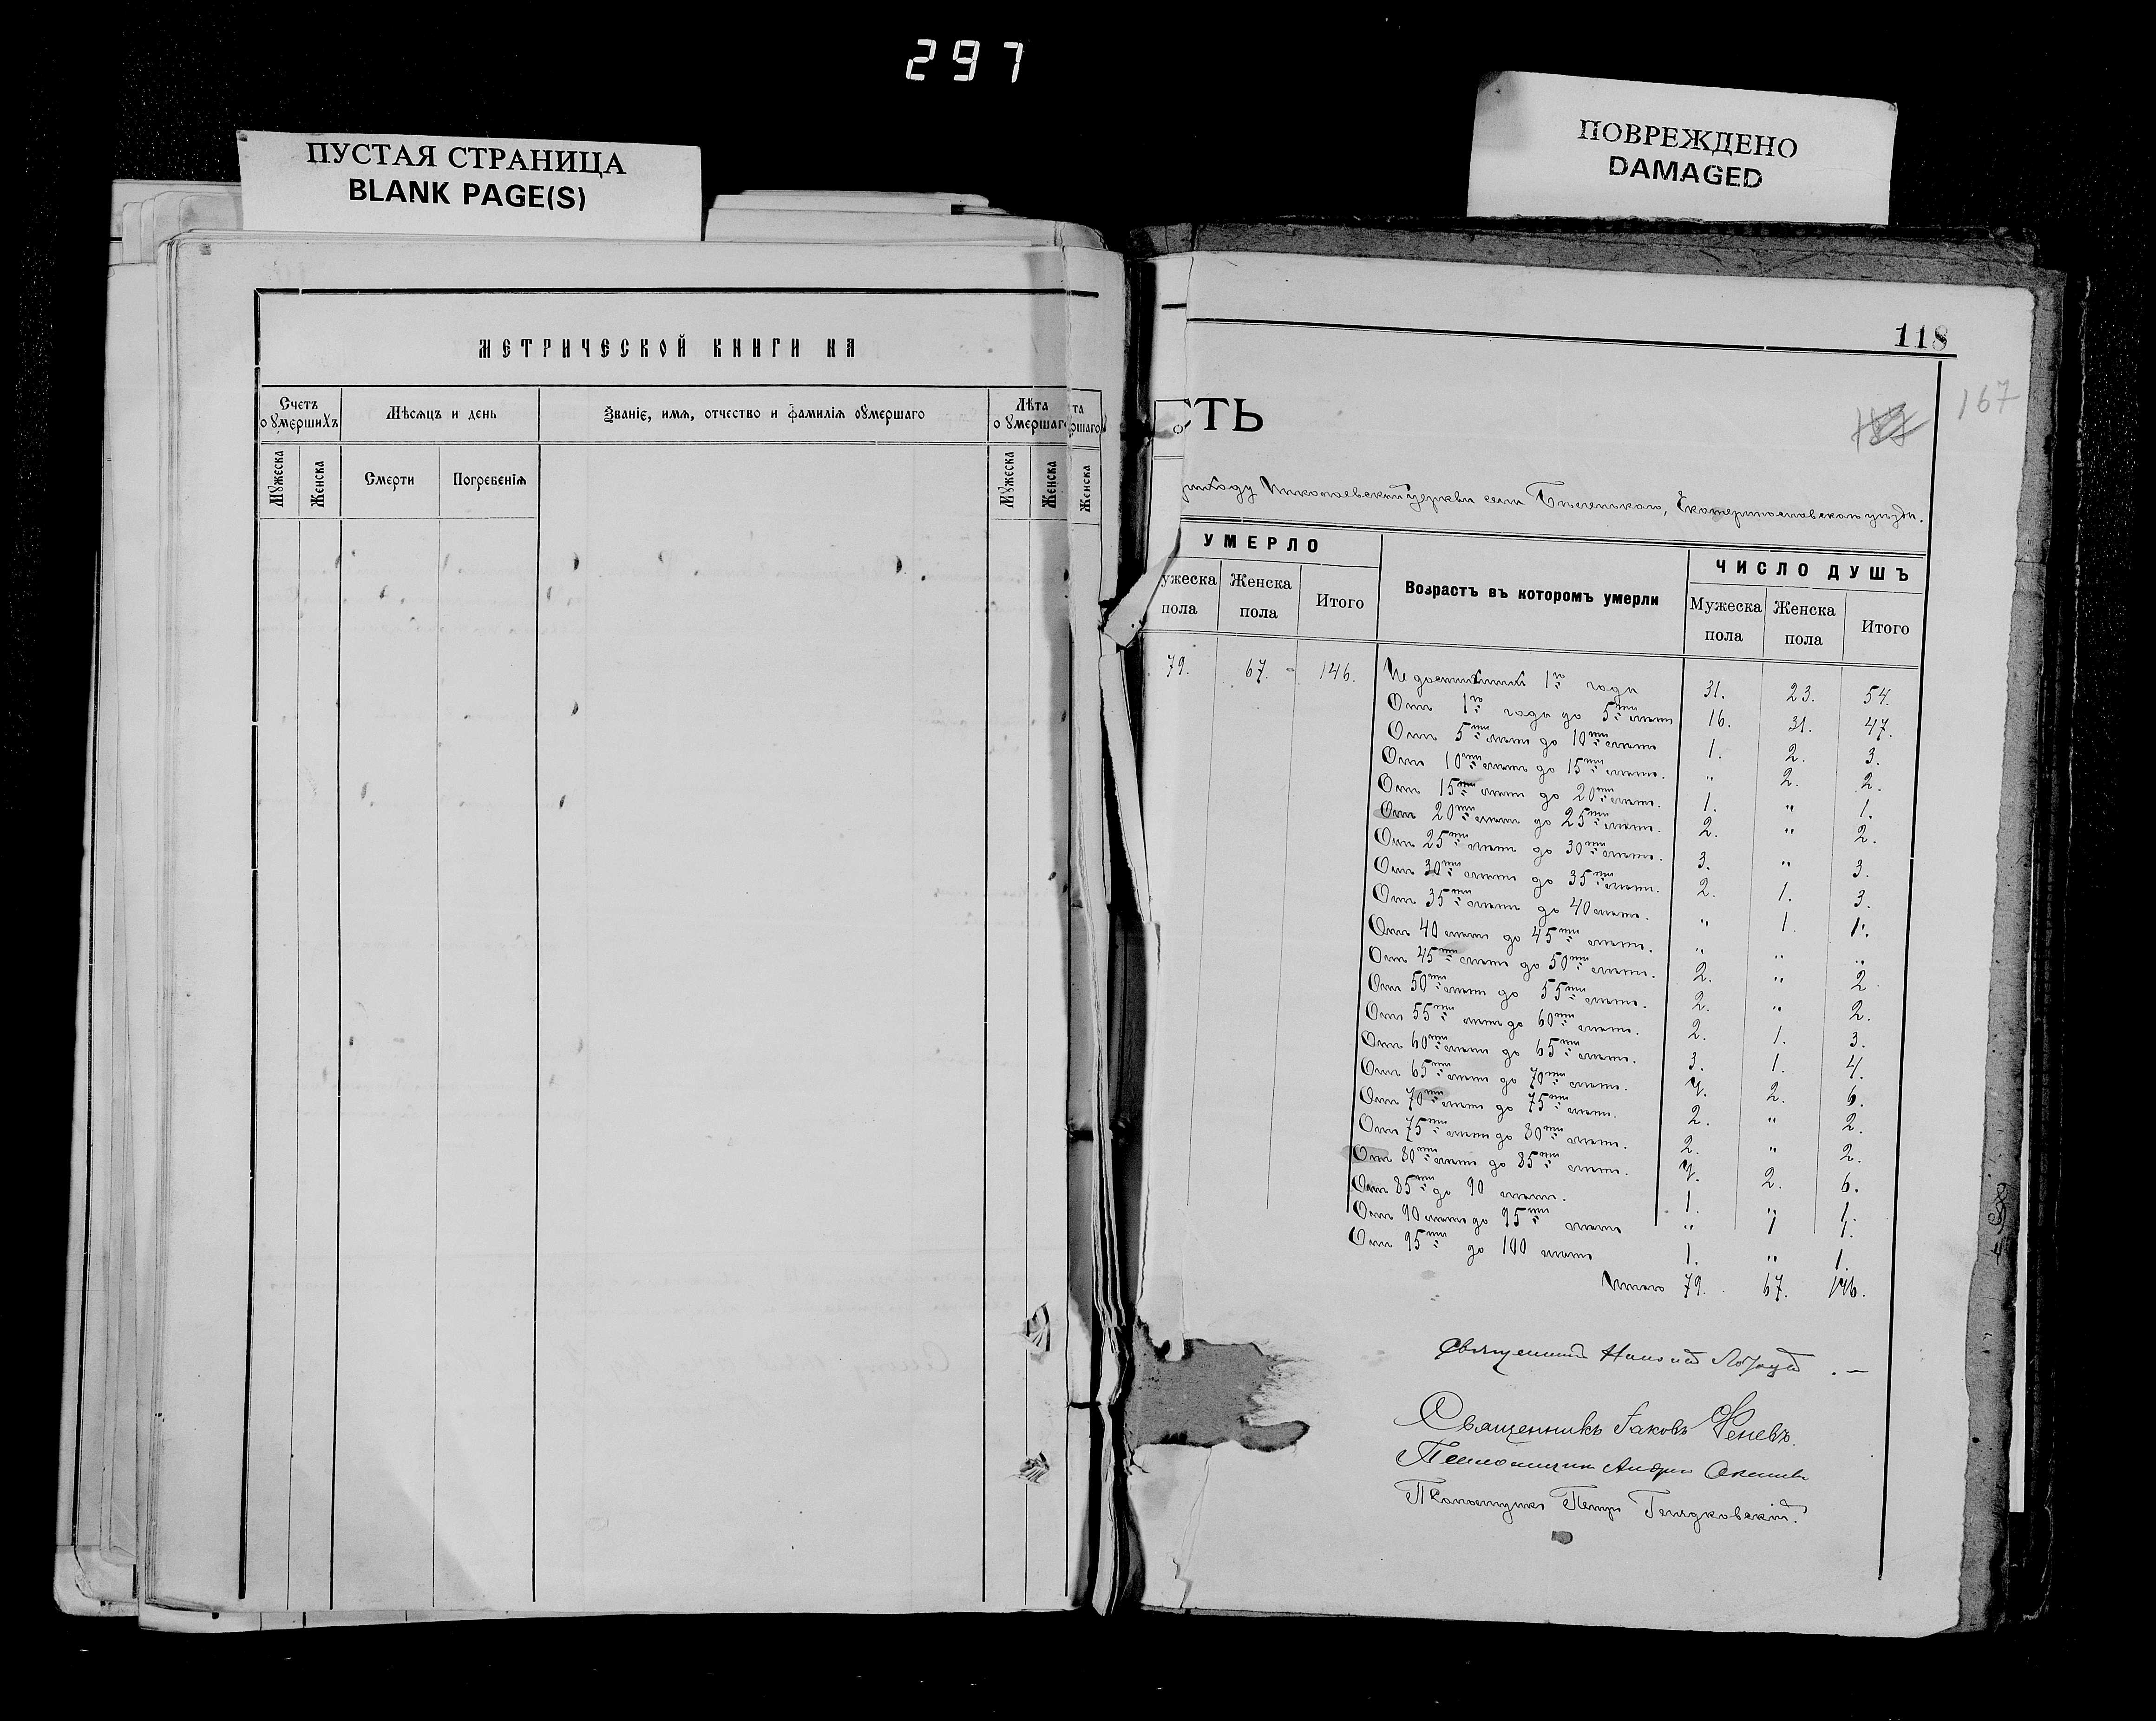 297
ПУСТАЯ СТРАНИЦА
BLANK PAGE(S)
ПОВРЕЖДЕНО
DAMAGED
МЕТРИЧЕСКОЙ КНИГИ НА
Счетъ оумершихъ
Мѣсяцъ и день
Званіе, имя, отчество и фамилія оумершаго
Лѣта оумершаго
Мужеска
Женска
Смерти
Погребенія
Мужеска
Женска
та
ршаго
Женска
118
167
СТЬ
приходу Николаевской церкви села Екатеринославскаго уѣзда.
УМЕРЛО
Возрастъ въ которомъ умерли
ЧИСЛО ДУШЪ
ужеска пола
Женска пола
Итого
Мужеска пола
Женска пола
Итого
79. 67. 146. Недостигшихъ 1го года 31. 23. 54.
Отъ 1го года до 5ти лѣтъ 16. 31. 47.
Отъ 5ти лѣтъ до 10ти лѣтъ 1. 2. 3.
Отъ 10ти лѣтъ до 15ти лѣтъ. " 2. 2.
Отъ 15ти лѣтъ до 20ти лѣтъ. 1. " 1.
Отъ 20ти лѣтъ до 25ти лѣтъ. 2. " 2.
Отъ 25ти лѣтъ до 30ти лѣтъ. 3. " 3.
Отъ 30ти лѣтъ до 35ти лѣтъ. 2. 1. 3.
Отъ 35ти лѣтъ до 40 лѣтъ. " 1. 1.
Отъ 40 лѣтъ до 45ти лѣтъ. " " "
Отъ 45ти лѣтъ до 50ти лѣтъ. 2. " 2
Отъ 50ти лѣтъ до 55ти лѣтъ. 2. " 2.
Отъ 55ти лѣтъ до 60ти лѣтъ. 2. 1. 3.
Отъ 60ти лѣтъ до 65ти лѣтъ. 3. 1. 4.
Отъ 65ти лѣтъ до 70ти лѣтъ. 4. 2. 6.
Отъ 70ти лѣтъ до 75ти лѣтъ. 2. " 2.
Отъ 75ти лѣтъ до 80ти лѣтъ. 2. " 2.
Отъ 80ти лѣтъ до 85ти лѣтъ. 4. 2. 6.
Отъ 85ти до 90 лѣтъ. 1. " 1.
Отъ 90 лѣтъ до 95ти лѣтъ " 1 1.
Отъ 95ти до 100 лѣтъ 1. " 1.
Итого 79. 67. 146.
Священникъ
Священникъ Іаковъ
Псаломщикъ Андрей
Псаломщикъ Петръ